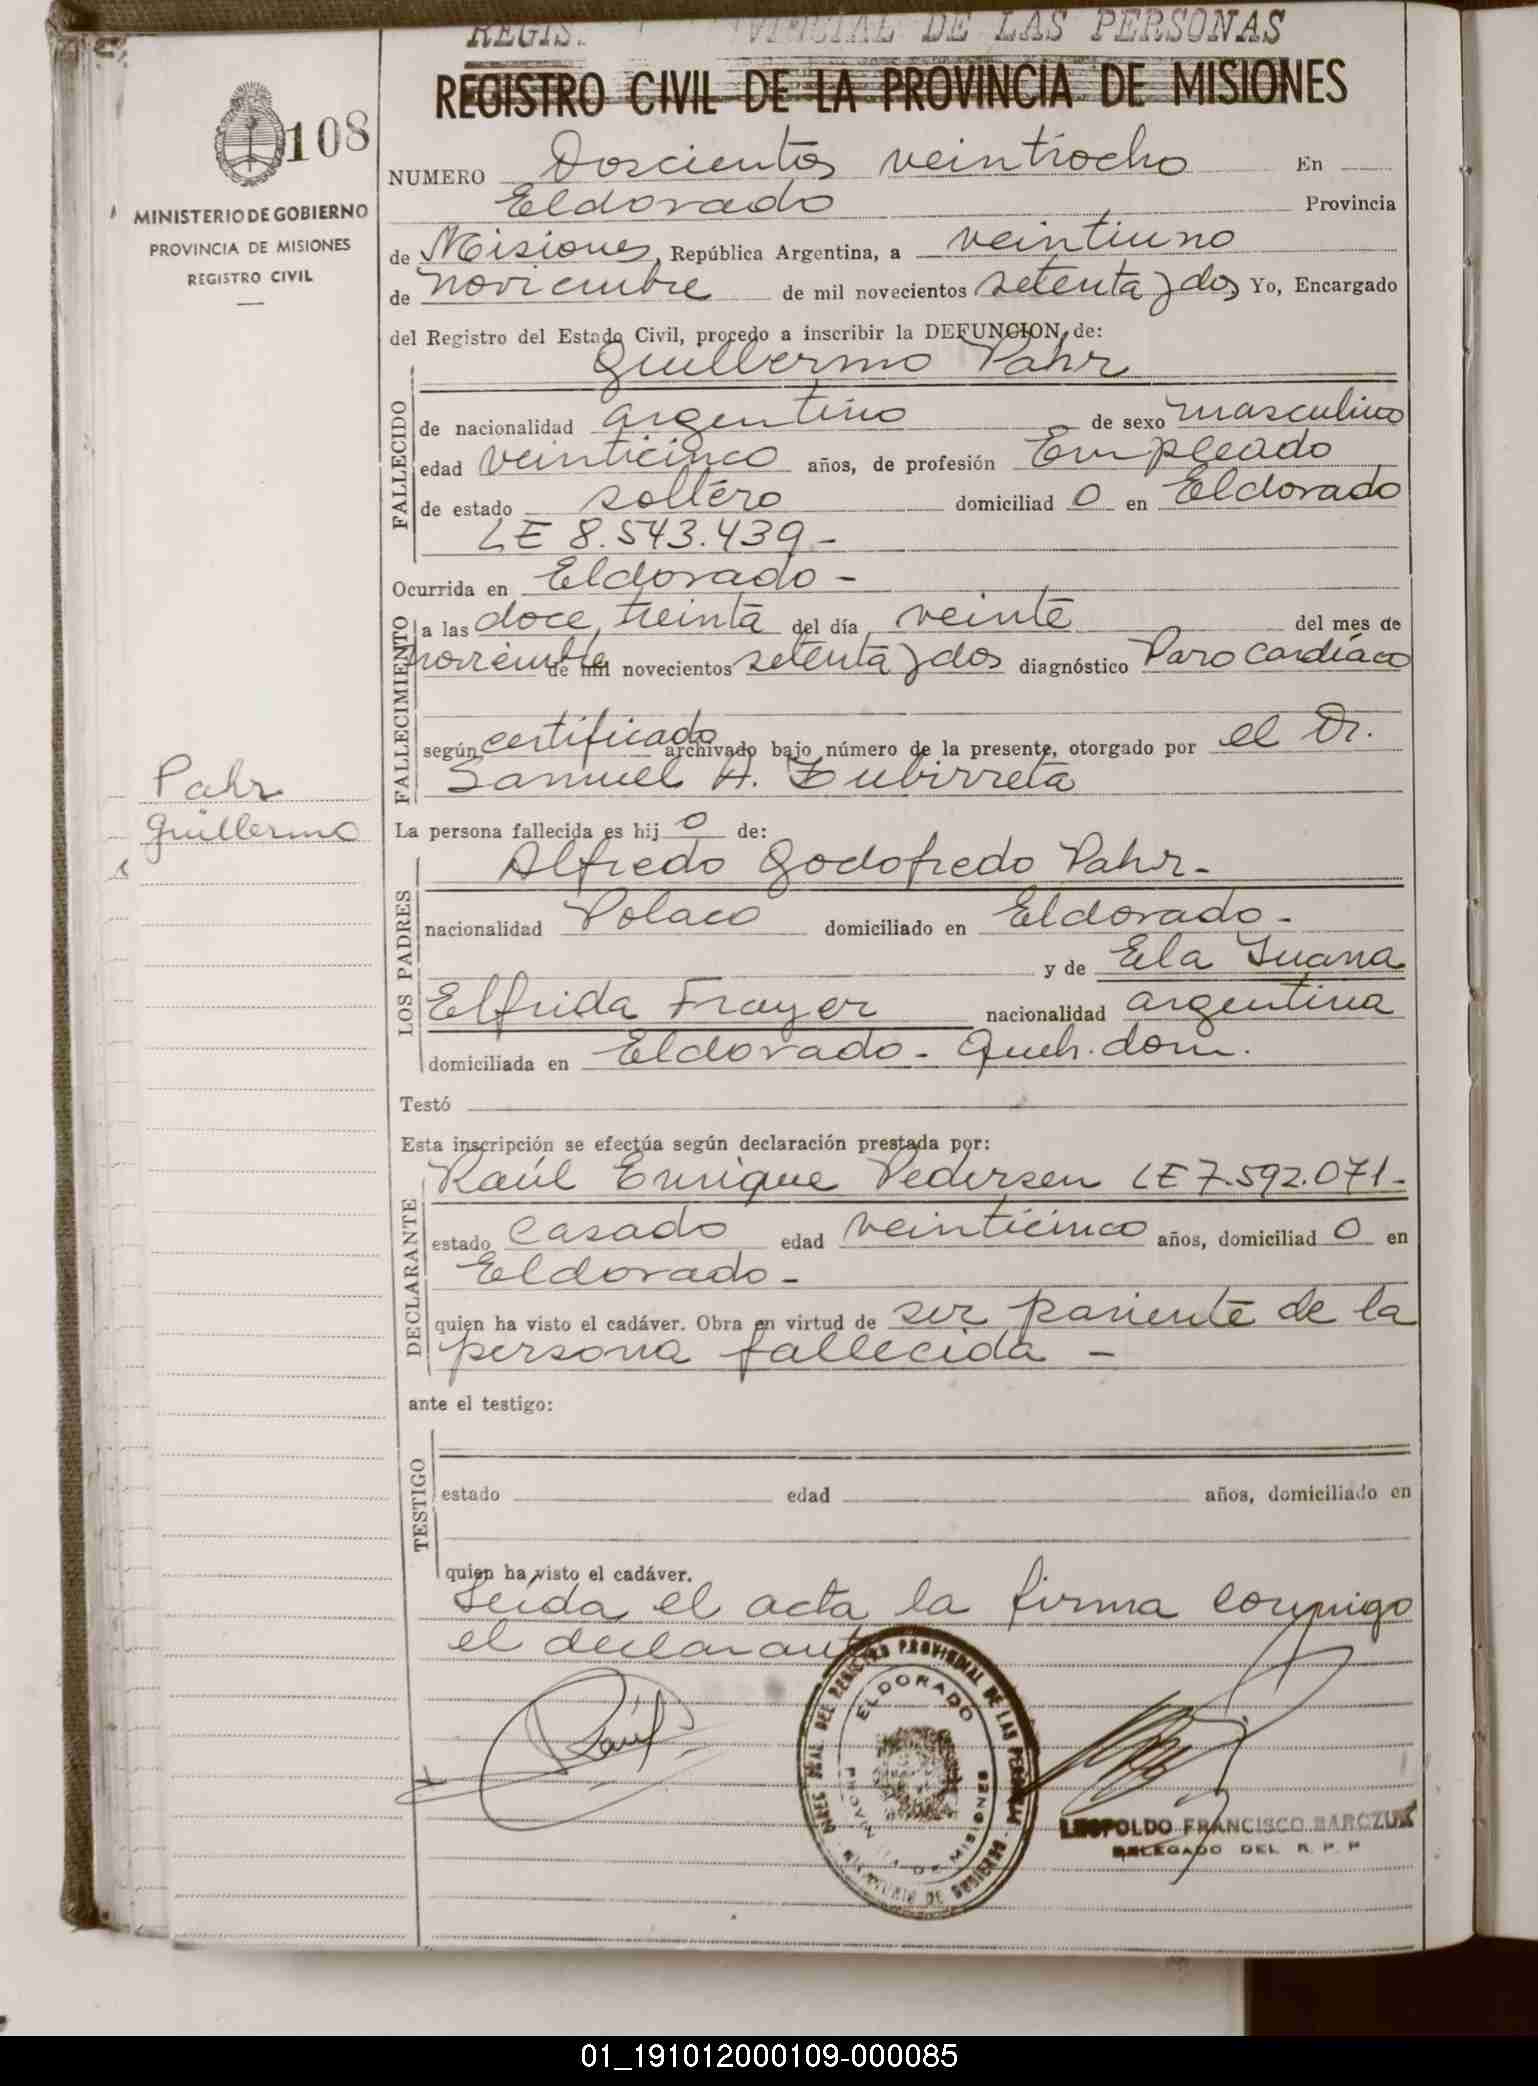 REGIS. VINCIAL DE LAS PERSONAS
REGISTRO CIVIL DE LA PROVINCIA DE MISIONES
108
MINISTERIO DE GOBIERNO
PROVINCIA DE MISIONES
REGISTRO CIVIL
NUMERO Doscientos veintiocho En
Eldorado Provincia
de Misiones, República Argentina, a veintiuno
de noviembre de mil novecientos setenta y dos Yo, Encargado
del Registro del Estado Civil, procedo a inscribir la DEFUNCION, de:
Guillermo Pahr
FALLECIDO
de nacionalidad argentino de sexo masculino
edad veinticinco años, de profesión Empleado
de estado soltero domiciliad o en Eldorado
LE 8.543.439-
Ocurrida en Eldorado -
FALLECIMIENTO
a las doce, treinta del día veinte del mes de
noviembre de mil novecientos setenta y dos diagnóstico Paro Cardíaco
según certificado archivado bajo número de la presente, otorgado por el Dr.
Samuel A. Zubirreta
Pahr
Guillermo
La persona fallecida es hij o de:
LOS PADRES
Alfredo Godofredo Pahr-
nacionalidad Polaco domiciliado en Eldorado-
y de Ela Juana
Elfrida Frayer nacionalidad argentina
domiciliada en Eldorado - Queh. dom.
Testó
Esta inscripción se efectúa según declaración prestada por:
DECLARANTE
Raúl Enrique Pedersen LE 7.592.071-
estado Casado edad veinticinco años, domiciliad o en
Eldorado-
quien ha visto el cadáver. Obra en virtud de ser pariente de la
persona fallecida -
ante el testigo:
TESTIGO
estado edad años, domiciliado en
quien ha visto el cadáver.
Leída el acta la firma conmigo
el declarante
Raúl
REGISTRO PROVINCIAL DE LAS PERSONAS
ELDORADO
MISIONES
MINISTERIO DE GOBIERNO
LEOPOLDO FRANCISCO BARCZUK
DELEGADO DEL R. P. P
01_191012000109-000085